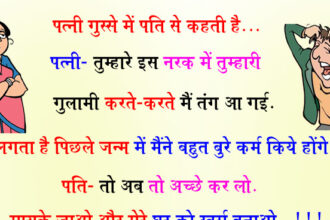 पत्नी गुस्से में पति से कहती है...
पत्नी- तुम्हारे इस नरक में तुम्हारी
गुलामी करते-करते मैं तंग आ गई.
लगता है पिछले जन्म में मैंने बहुत बुरे कर्म किये होंगे
पति- तो अब तो अच्छे कर लो.
मायके जाओ और मेरे घर को स्वर्ग बनाओ...!!!